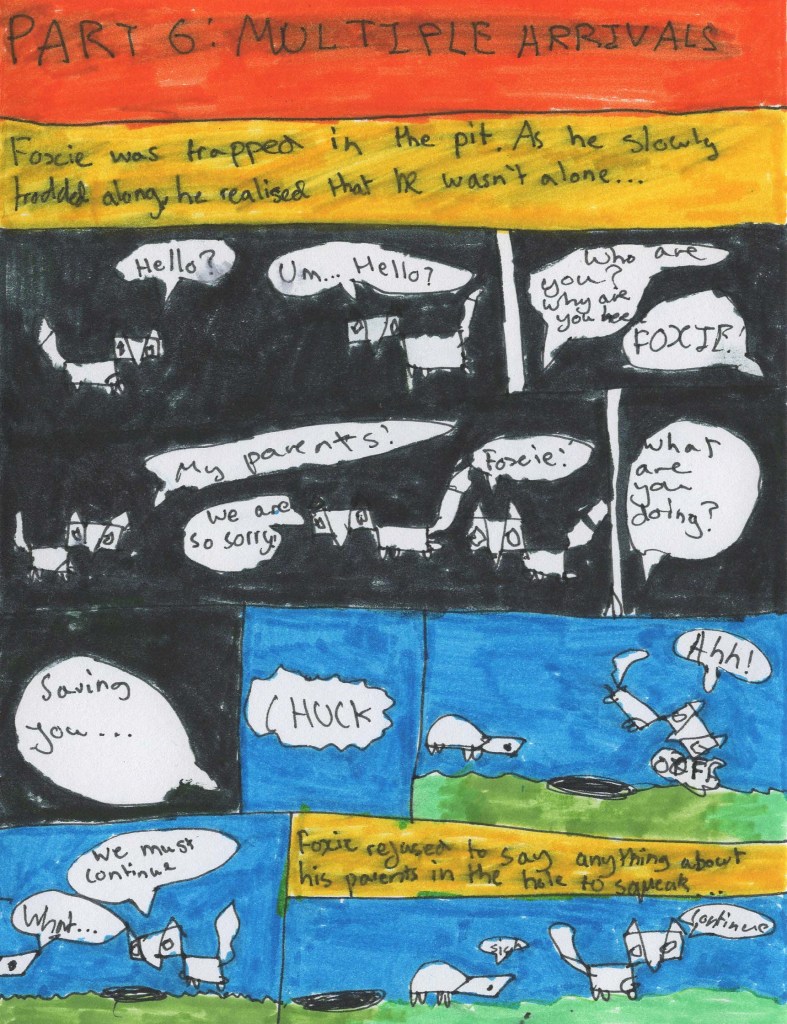 PART 6: MULTIPLE ARRIVALS
Foxcie was trapped in the pit. As he slowly
trodded along, he realised that he wasn't alone...
Hello?
Um... Hello?
Who are
you?
Why are
you hee
FOXIE!
My parents!
We are
so sorry!
Foxcie!
What
are
you
doing?
Saving
you....
CHUCK
Ahh!
OOFF
We must
continue
What...
Foxcie refused to say anything about
his parents in the hole to squeak...
Sigh
Continue